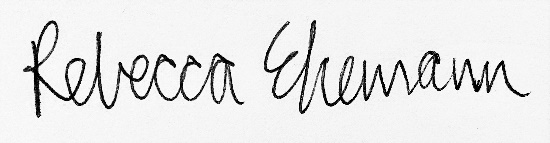 Rebecca Ekemann